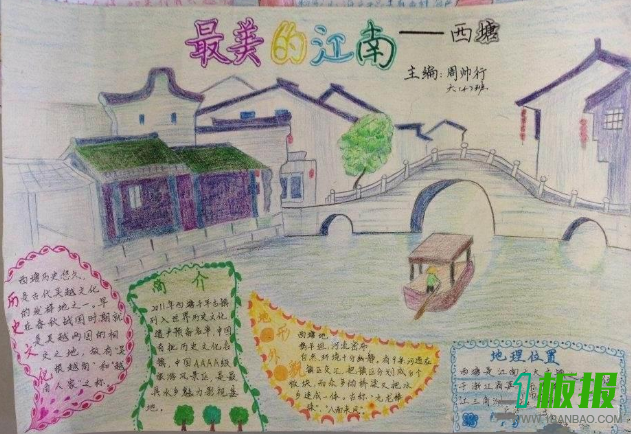 最美的江南——西塘
主编:周帅行
六(4)班
历史文化
西塘历史悠久,
是古代吴越文化
的发祥地之一。早
在春秋战国时期就
是吴越两国的相
交之地,故有"吴
根越角"和"越
角人家"之称.
简介
2011年西塘千年古镇
列入世界历史文化
遗产预备名单,中国
首批历史文化名
镇,中国AAAA级
旅游风景区,是最
具水乡魅力影视基
地.
地形外貌
西塘地
势平坦,河流密布
自然环境十分幽静,有9条河道在
镇区交汇,把镇区分划成8个
板块,而众多的桥梁又把水
乡连成一体,古称"九龙捧
珠","八面来风".
地理位置
西塘是江南六大古镇
1板报
WWW.1BANBAO.COM